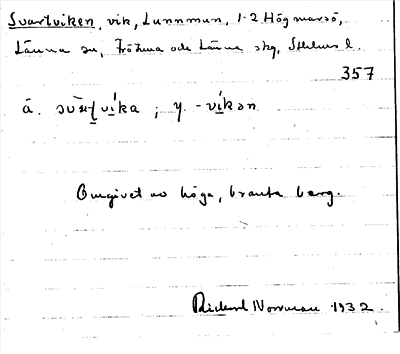 Svartviken, vik, Lunnmun, 1-2 Högmarsö,
Länna sn, Frötuna och Länna skg, Sthlms l.
357
ä. svàʈvíka ; y. -víkən
Omgivet av höga, branta berg.
Rickard Norrman 1932.